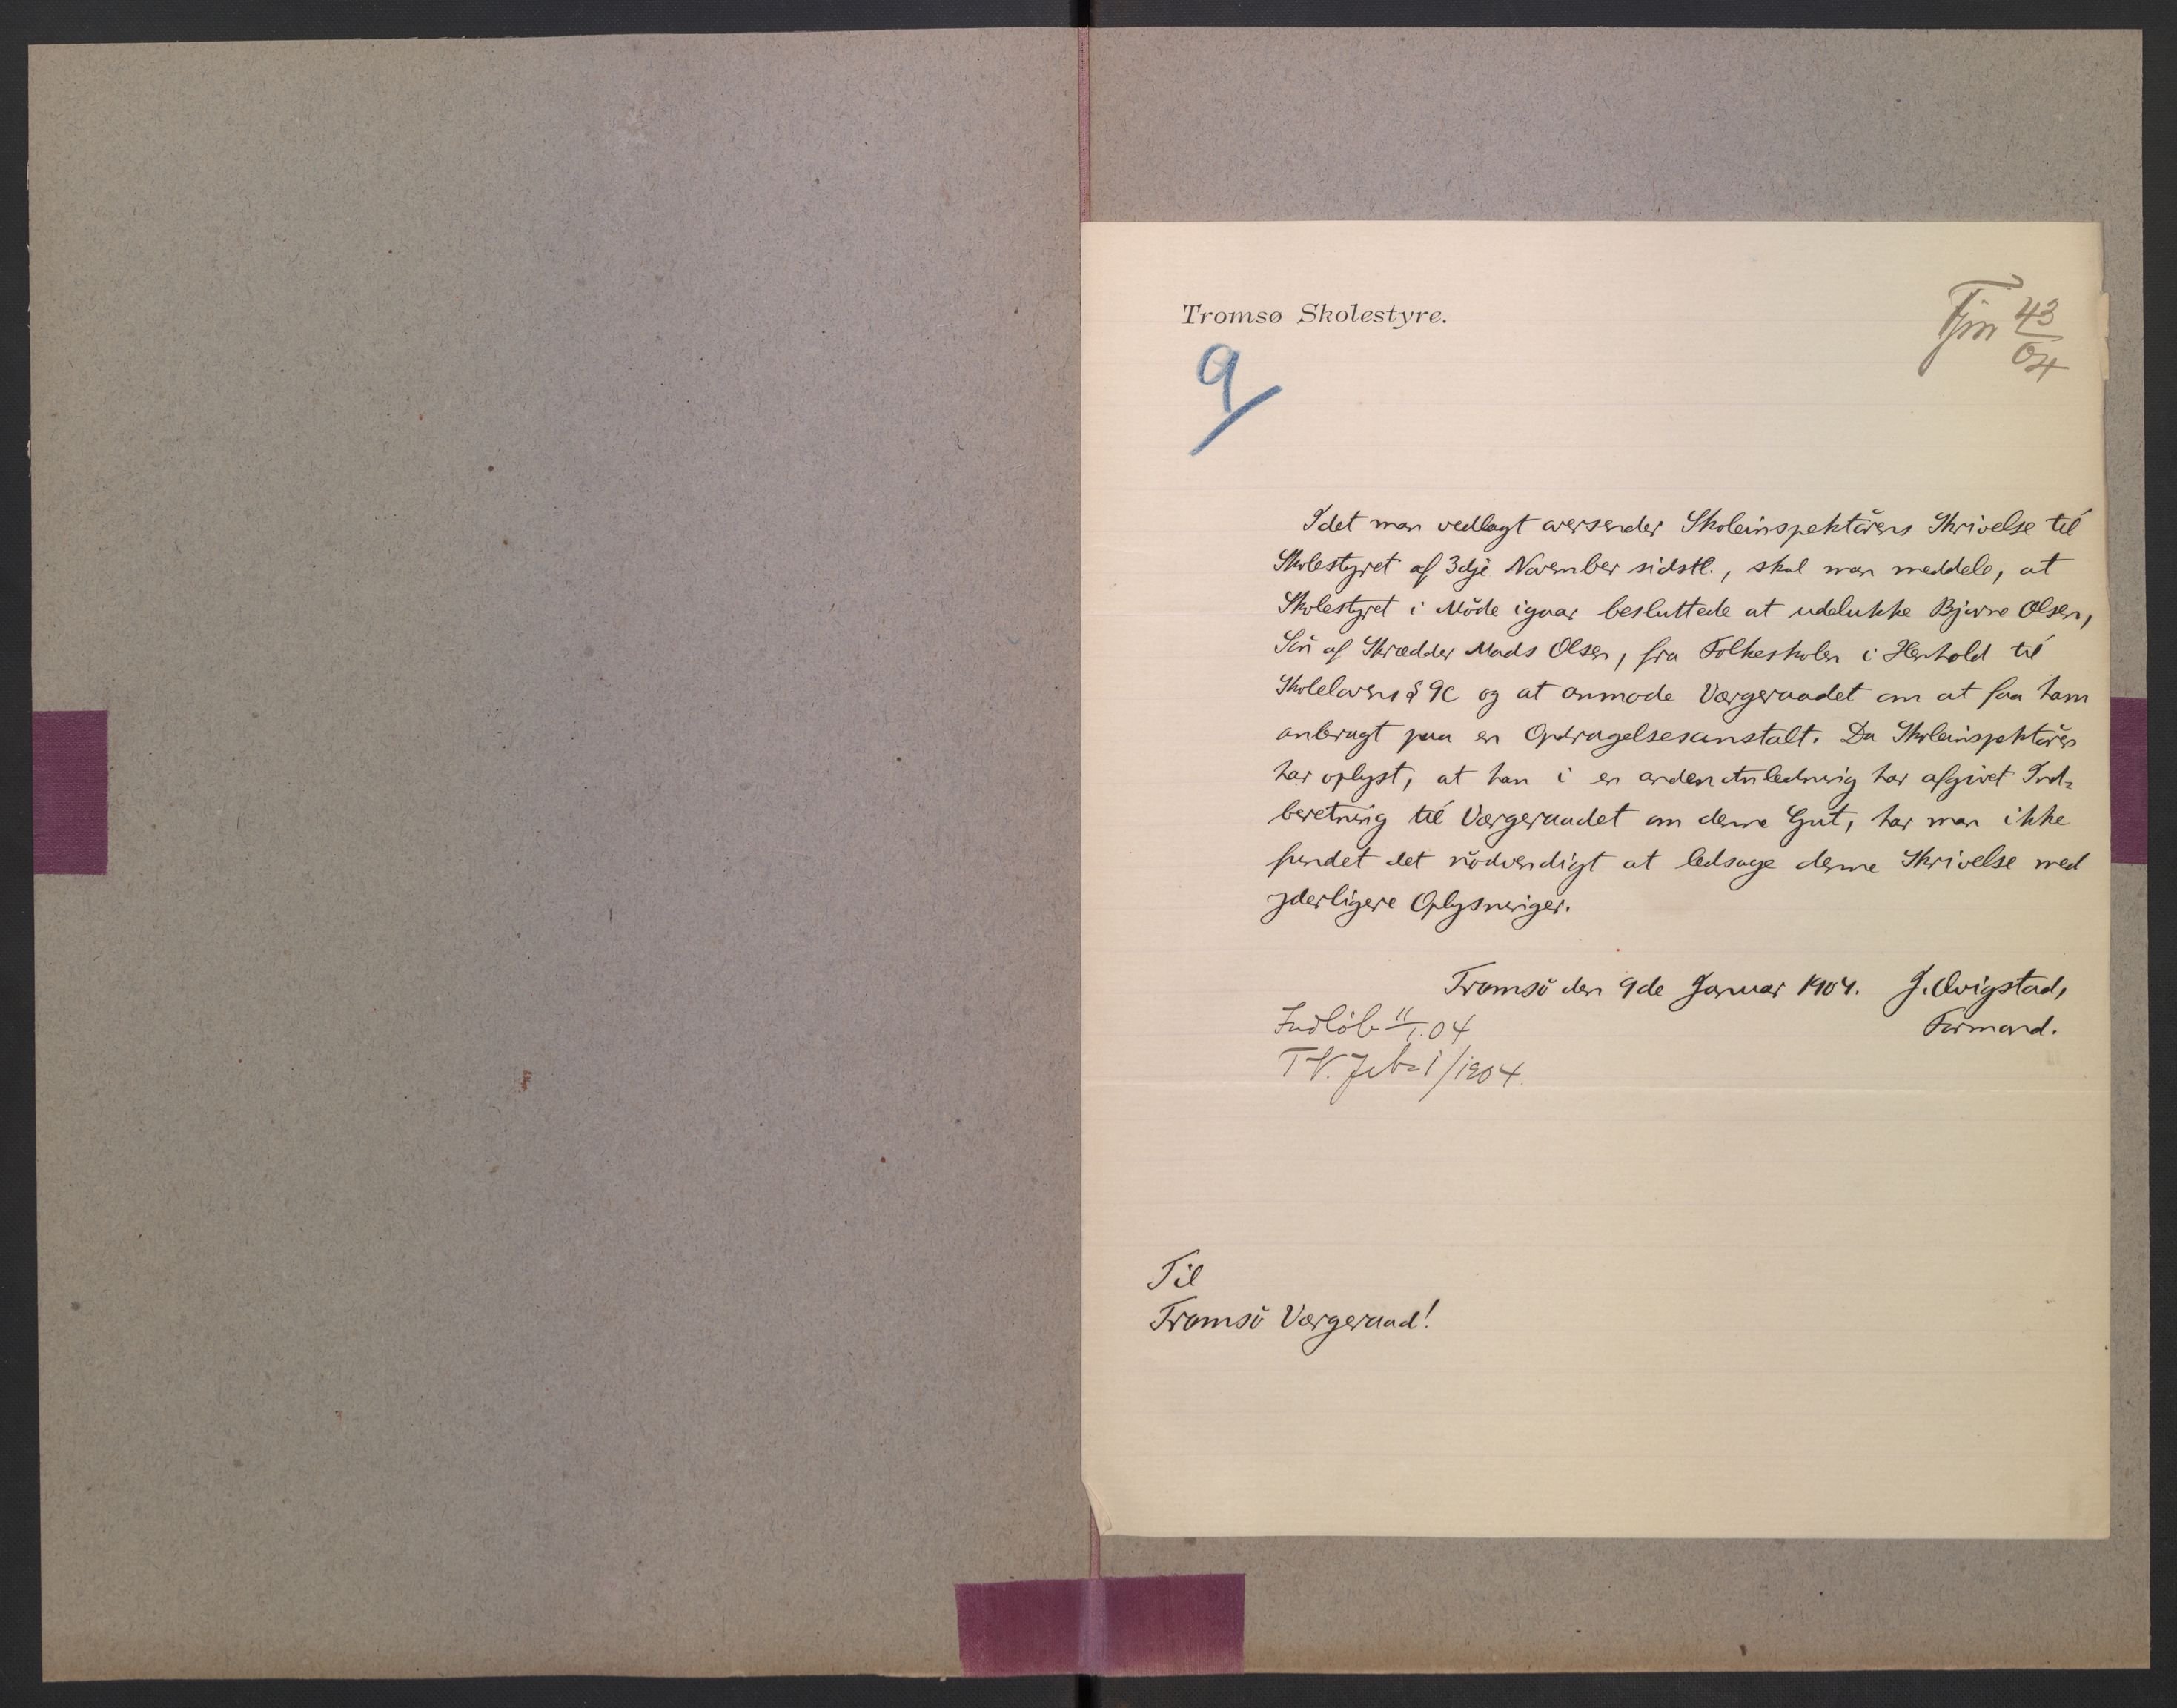 Tromsø Skolestyre.
43
04
9
Idet man vedlagt oversender Skoleinspektörens Skrivelse til
Skolestyret af 3dje November sidstl., skal man meddele, at
Skolestyret i Möde igaar besluttede at udelukke Bjarne Olsen,
Sön af Skrædder Mads Olsen, fra Folkeskolen i Henhold til
Skolelovens § 9c og at anmode Værgeraadet om at faa ham
anbragt paa en Opdragelsesanstalt. Da Skoleinspektören
har oplyst, at han i en anden Anledning har afgivet Ind-
beretning til Værgeraadet om denne Gut, har man ikke
fundet det nödvendigt at ledsage denne Skrivelse med
yderligere Oplysninger.
Tromsö den 9de Januar 1904. J. Qvigstad,
Formand.
Indlöb 11/1.04
1/1904.
Til
Tromsö Værgeraad!